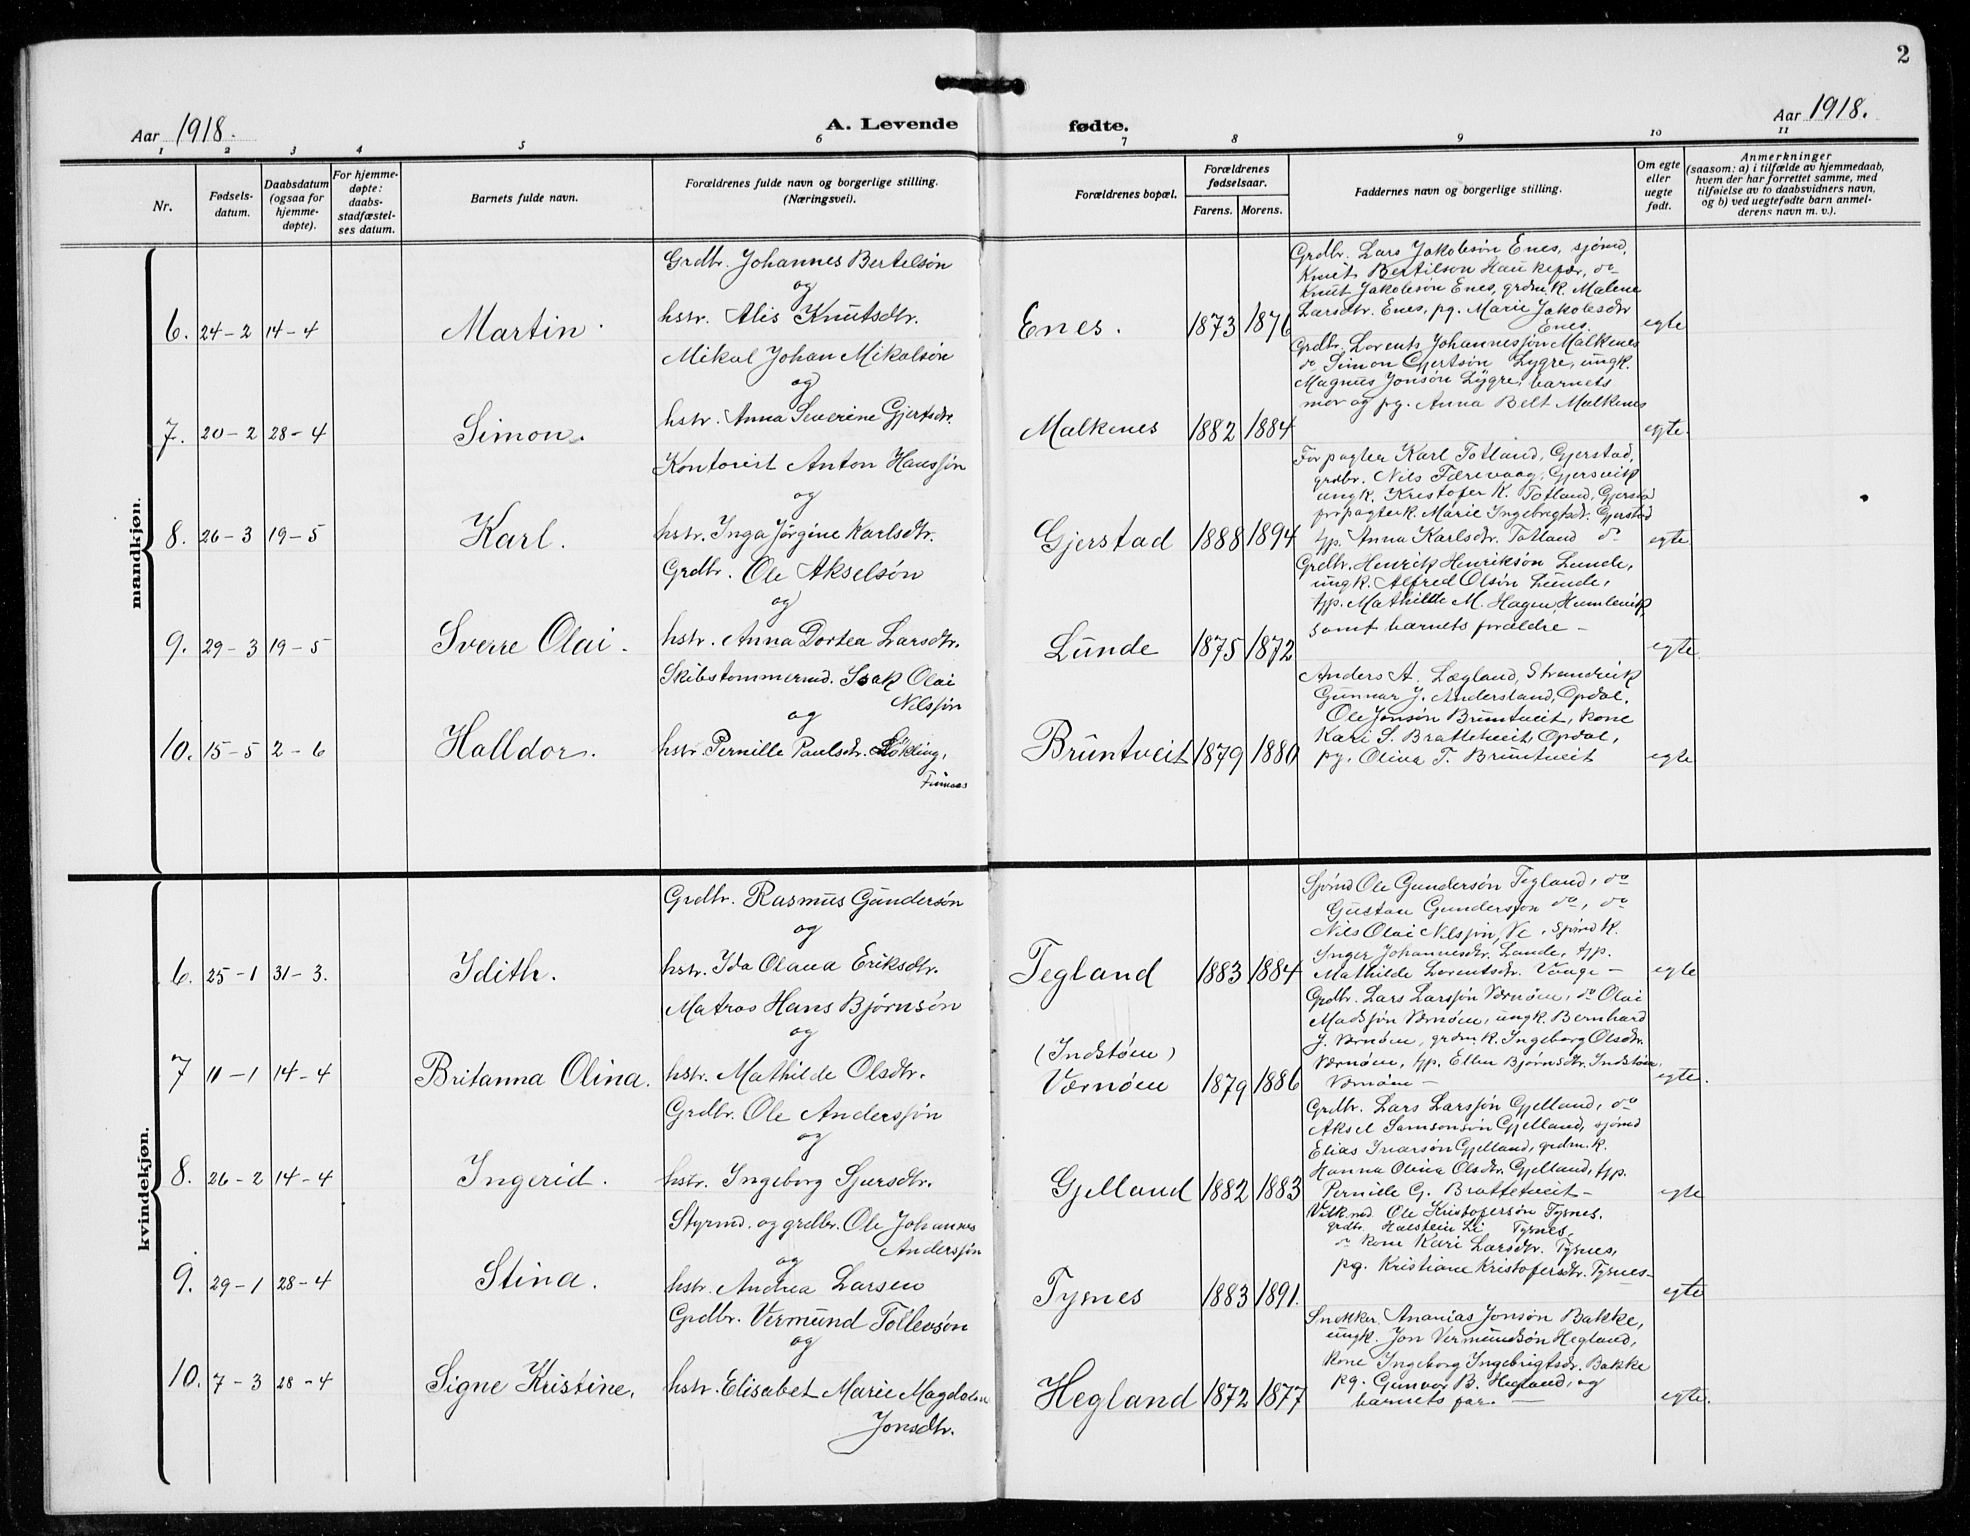 2
Aar 1918.
A. Levende fødte.
Aar 1918.
1 2 3 4 5 6 7 8 9 10 11
Nr.
Fødsels-
datum.
Daabsdatum
(ogsaa for
hjemme-
døpte).
For hjemme-
døpte:
daabs-
stadfæstel-
ses datum.
Barnets fulde navn.
Forældrenes fulde navn og borgerlige stilling.
(Næringsvei).
Forældrenes bopæl.
Forældrenes
fødselsaar.
Farens. Morens.
Faddernes navn og borgerlige stilling.
Om egte
eller
uegte
født.
Anmerkninger
(saasom: a) i tilfælde av hjemmedaab,
hvem der har forrettet samme, med
tilføielse av to daabsvidners navn,
og b) ved uegtefødte barn anmel-
derens navn m. v.).
mandkjøn.
6. 24-2 14-4 Martin.
Grdbr. Johannes Bertelsøn
og
hstr. Alis Knutsdtr.
Enes. 1873 1876
Grdbr. Lars Jakobsøn Enes, sjømd.
Knut Bertilson Haukefær, do
Knut Jakobsøn Enes, grdm.k. Malene
Larsdtr. Enes, pg. Marie Jakobsdtr
Enes.
egte
7. 20-2 28-4 Simon.
Mikal Johan Mikalsøn
og
hstr. Anna Severine Gjertsdtr.
Malkenes 1882 1884
Grdbr. Lorents Johannessøn Malkenes
do Simon Gjertsøn Lygre, ungk.
Magnus Jonsøn Lygre, barnets
mor og pg. Anna Belt Malkenes
egte.
8. 26-3 19-5 Karl.
Kontorist Anton Hanssøn
og
hstr. Inga Jørgine Karlsdtr.
Gjerstad 1888 1894
Forpagter Karl Totland, Gjerstad,
grdbr. Nils Færevaag, Gjersvik
ungk. Kristofer K. Totland, Gjerstad
forpagterk. Marie Ingebrigtsdr. Gjerstad
tjp. Anna Karlsdtr. Totland do
egte
9. 29-3 19-5 Sverre Olai.
Grdbr. Ole Akselsøn
og
hstr. Anna Dortea Larsdtr.
Lunde 1875 1872
Grdbr. Henrik Henriksøn Lunde,
ungk. Alfred Olsøn Lunde,
tjp. Mathilde M. Hagen, Humlevik
samt barnets forældre -
egte.
10. 15-5 2-6 Halldor.
Skibstømmermd. Isak Olai
Nilssøn
og
hstr. Pernille Paulsdtr. Løkling,
Finnaas
Bruntveit 1879 1880
Anders A. Lægland, Strandvik
Gunnar J. Andersland, Opdal,
Ole Jonsøn Bruntveit, kone
Kari S. Bratteteveit Opdal,
pg. Olina T. Bruntveit
egte
kvindekjøn.
6. 25-1 31-3. Idith.
Grdbr. Rasmus Gundersøn
og
hstr. Ida Olava Eriksdtr.
Tegland 1883 1884
Sjømd Ole Gundersøn Tegland, do
Gustav Gundersøn do, do
Nils Olai Nilssøn, Ve, sjømd k.
Inger Johannesdtr. Lande, tjp.
Mathilde Lorentsdtr. Vaage -
egte
7 11-1 14-4 Britanna Olina.
Matros Hans Bjørnsøn
og
hstr. Mathilde Olsdtr.
(Indstøen)
Værnøen 1879 1886
Grdbr. Lars Larssøn Værnøen, do Olai
Madssøn Værnøen, ungk. Bernhard
J. Værnøen, grdm.k. Ingeborg Olsdtr.
Værnøen, tjp. Ellen Bjørnsdtr. Indstøen,
Værnøen -
egte.
8. 26-2 14-4 Ingerid.
Grdbr. Ole Anderssøn
og
hstr. Ingeborg Sjursdtr.
Gjelland 1882 1883
Grdbr. Lars Larssøn Gjelland, do
Aksel Samsonsøn Gjelland, sjømd
Elias Ivarsøn Gjelland, grdm.k.
Hanna Olina Olsdtr. Gjelland, tjp.
Pernille G. Brattetveit -
egte
9. 29-1 28-4 Stina.
Styrmd. og grdbr. Ole Johannes
Anderssøn
og
hstr. Andrea Larsen
Tysnes 1883 1891.
Ole Kristofersøn Tysnes,
grdbr. Halstein Li Tysnes,
do kone Kari Larsdtr. Tysnes,
pg. Kristiane Kristofersdtr. Tysnes -
egte
10. 7-3 28-4 Signe Kristine.
Grdbr. Vermund Tollevsøn
og
hstr. Elisabet Marie Magdalen
Jonsdtr.
Hegland 1872 1877
Snekker Ananias Jonsøn Bakke,
ungk. Jon Vermundsøn Hegland,
kone Ingeborg Ingebrigtsdr. Bakke
pg. Gunvor B. Hegland, og
barnets far. -
egte.